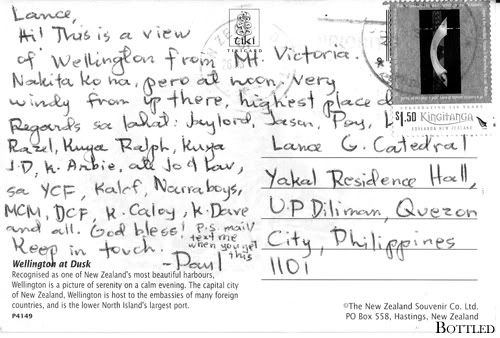 Lance,
Hi! This is a view
of Wellington from Mt. Victoria.
Nakita ko na, pero at noon. Very
windy from up there, highest place
Regards sa lahat: Jaylord, Jason, Poy, L
Razel, Kuya Ralph, Kuya
J.D, K. Arbie, all
sa YCF, Kalcf, Narraboys,
MCM, DCF, K. Caloy, K. Dave
and all. God bless!
Keep in touch.
- Paul
P.S. mail/
text me
when you get
this
tiki
TIKICARD
NEW ZEALAND
$1.50 Kingitanga
AOTEAROA NEW ZEALAND
Lance G. Catedral
Yakal Residence Hall,
U.P Diliman, Quezon
City, Philippines
1101
Wellington at Dusk
Recognised as one of New Zealand's most beautiful harbours,
Wellington is a picture of serenity on a calm evening. The capital city
of New Zealand, Wellington is host to the embassies of many foreign
countries, and is the lower North Island's largest port.
P4149
©The New Zealand Souvenir Co. Ltd.
PO Box 558, Hastings, New Zealand
BOTTLED